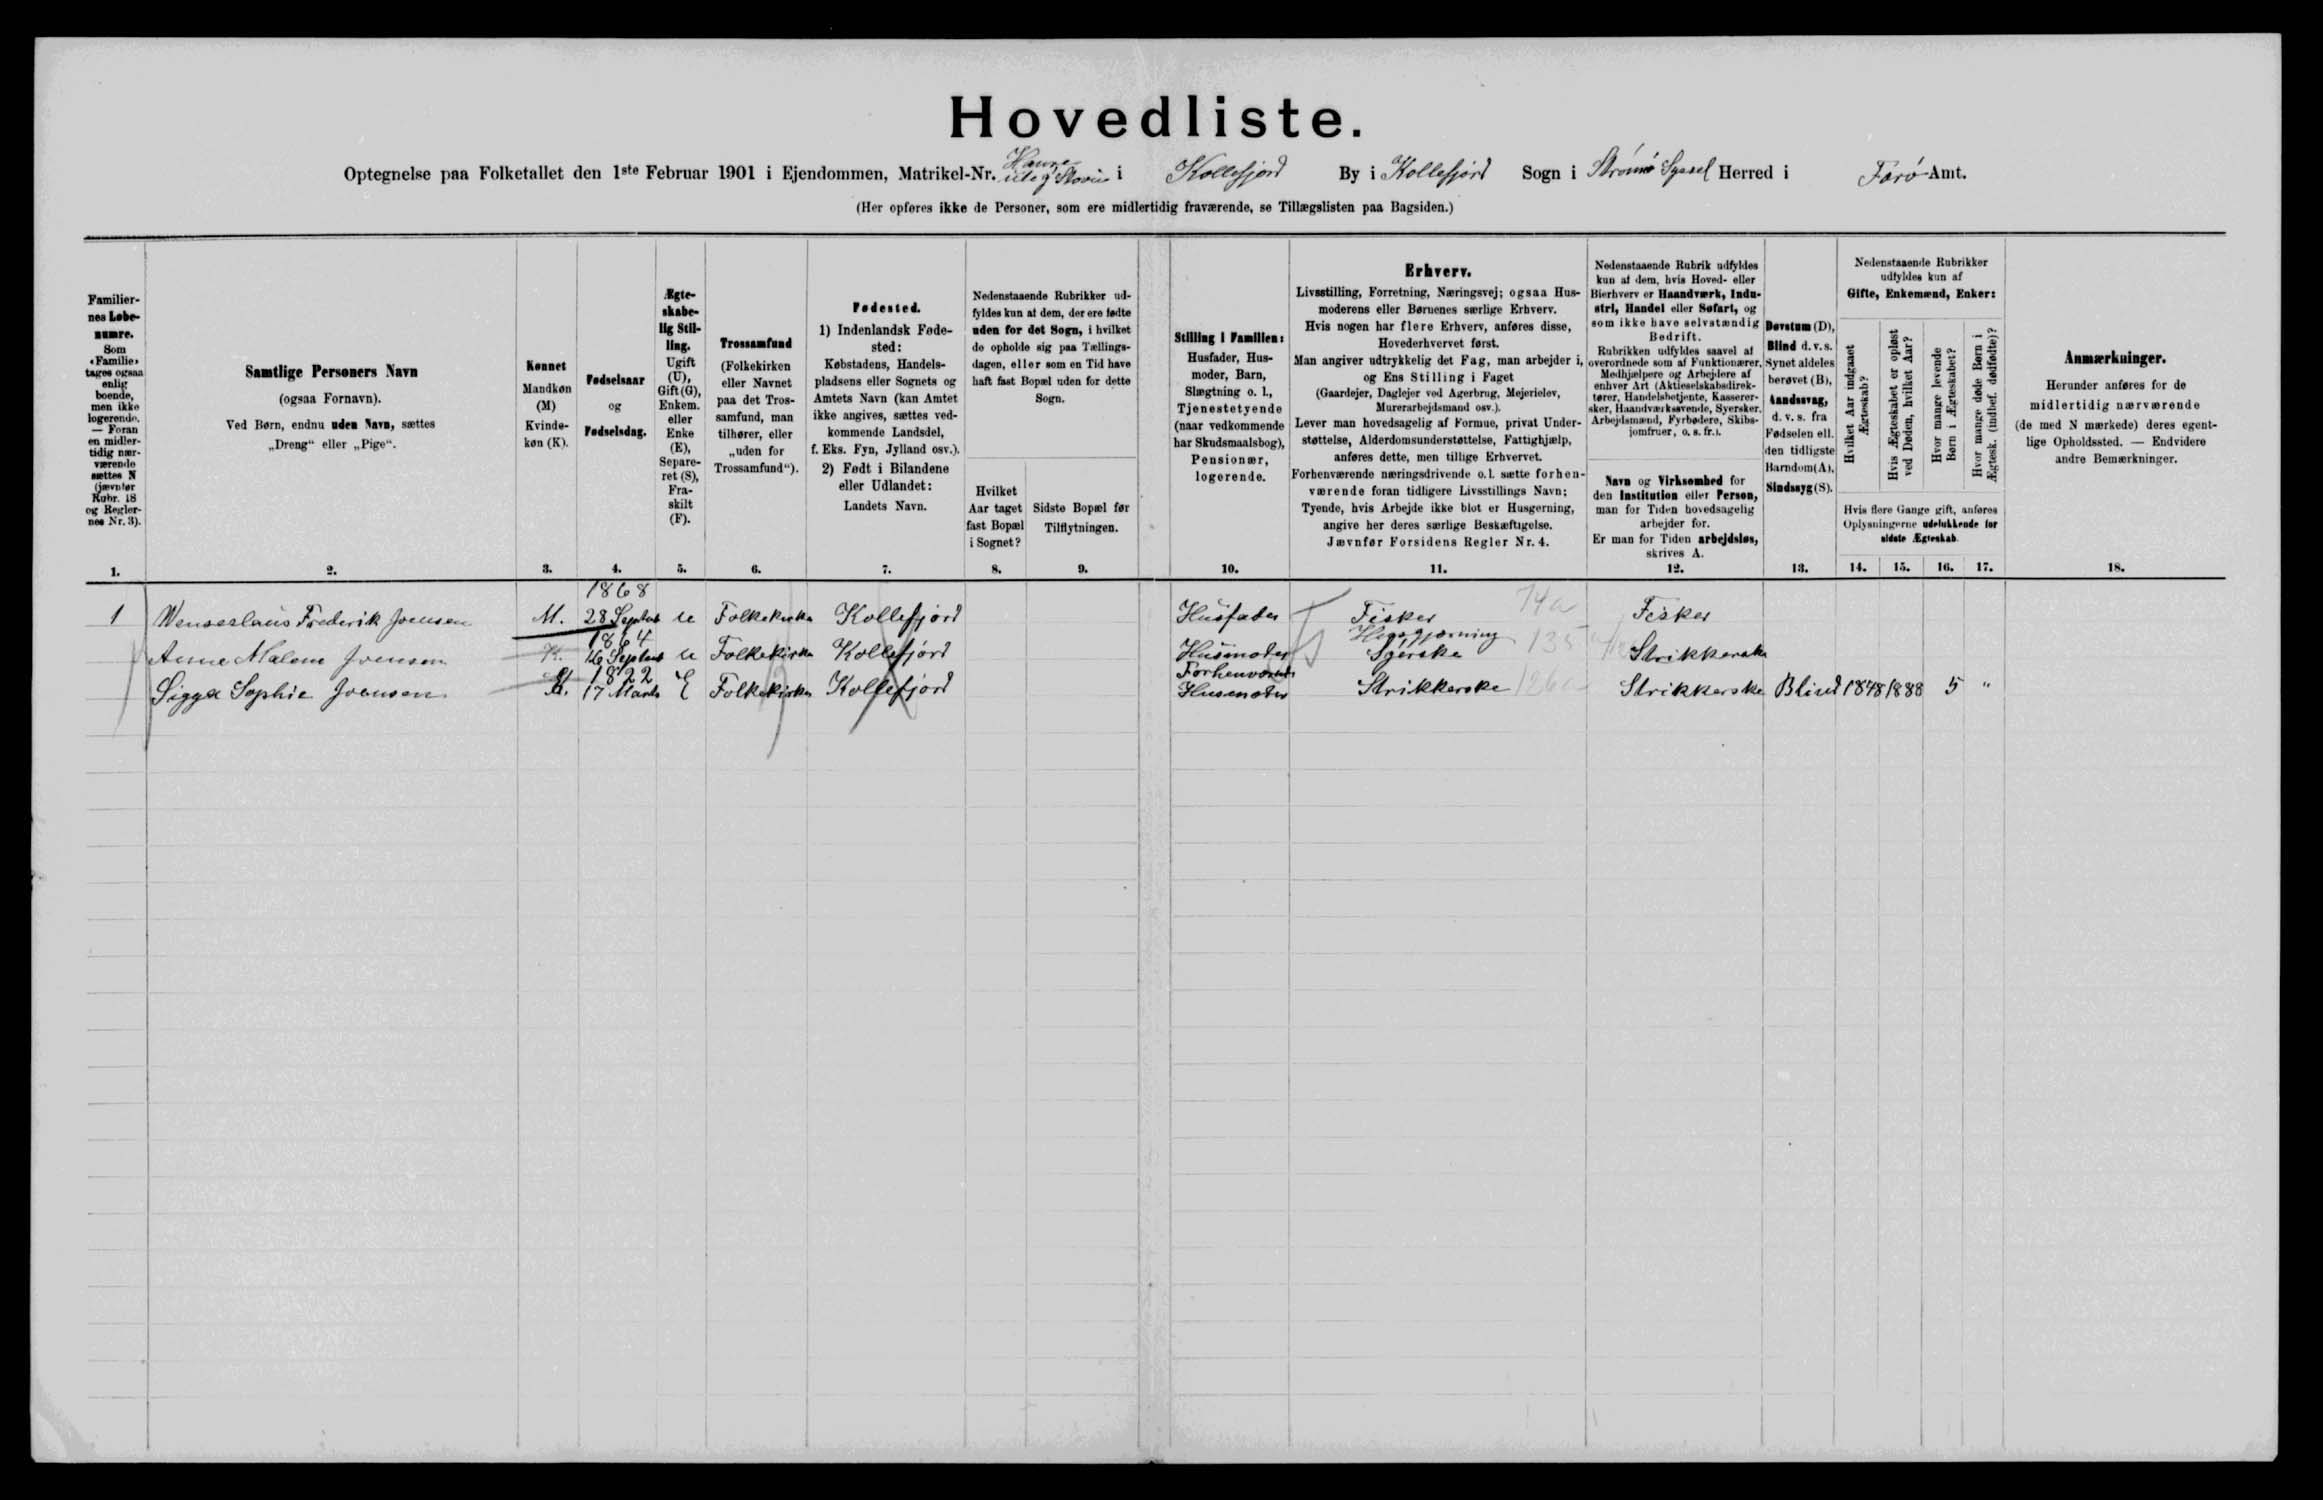 Hovedliste.
Optegnelse paa Folketallet den 1ste Februar 1901 i Ejendommen, Matrikel-Nr. i Kollefjord By i Kollefjord Sogn i Strømø Syssel Herred i Færø Amt.
(Her opføres ikke de Personer, som ere midlertidig fraværende, se Tillægslisten paa Bagsiden.)
Familier-
nes Løbe-
numre.
Som
«Familie»
tages ogsaa
enlig
boende,
men ikke
logerende.
— Foran
en midler-
tidig nær-
værende
sættes N
(jævnfør
Rubr. 18
og Regler-
nes Nr. 3).
1.
Samtlige Personers Navn
(ogsaa Fornavn).
Ved Børn, endnu uden Navn, sættes
„Dreng“ eller „Pige“.
2.
Kønnet
Mandkøn
(M)
Kvinde-
køn (K).
3.
Fødselsaar
og
Fødselsdag.
4.
Ægte-
skabe-
lig Stil-
ling.
Ugift
(U),
Gift (G),
Enkem.
eller
Enke
(E),
Separe-
ret (S),
Fra-
skilt
(F).
5.
Trossamfund
(Folkekirken
eller Navnet
paa det Tros-
samfund, man
tilhører, eller
„uden for
Trossamfund“).
6.
Fødested.
1) Indenlandsk Føde-
sted:
Købstadens, Handels-
pladsens eller Sognets og
Amtets Navn (kan Amtet
ikke angives, sættes ved-
kommende Landsdel,
f. Eks. Fyn, Jylland osv.).
2) Født i Bilandene
eller Udlandet:
Landets Navn.
7.
Nedenstaaende Rubrikker ud-
fyldes kun af dem, der ere fødte
uden for det Sogn, i hvilket
de opholde sig paa Tællings-
dagen, eller som en Tid have
haft fast Bopæl uden for dette
Sogn.
Hvilket
Aar taget
fast Bopæl
i Sognet?
8.
Sidste Bopæl før
Tilflytningen.
9.
Stilling i Familien:
Husfader, Hus-
moder, Barn,
Slægtning o. l.,
Tjenestetyende
(naar vedkommende
har Skudsmaalsbog),
Pensionær,
logerende.
10.
Erhverv.
Livsstilling, Forretning, Næringsvej; ogsaa Hus-
moderens eller Børnenes særlige Erhverv.
Hvis nogen har flere Erhverv, anføres disse,
Hovederhvervet først.
Man angiver udtrykkelig det Fag, man arbejder i,
og Ens Stilling i Faget
(Gaardejer, Daglejer ved Agerbrug, Mejerielev,
Murerarbejdsmand osv.).
Lever man hovedsagelig af Formue, privat Under-
støttelse, Alderdomsunderstøttelse, Fattighjælp,
anføres dette, men tillige Erhvervet.
Forhenværende næringsdrivende o. l. sætte forhen-
værende foran tidligere Livsstillings Navn;
Tyende, hvis Arbejde ikke blot er Husgerning,
angive her deres særlige Beskæftigelse.
Jævnfør Forsidens Regler Nr. 4.
11.
Nedenstaaende Rubrik udfyldes
kun af dem, hvis Hoved- eller
Bierhverv er Haandværk, Indu-
stri, Handel eller Søfart, og
som ikke have selvstændig
Bedrift.
Rubrikken udfyldes saavel af
overordnede som af Funktionærer,
Medhjælpere og Arbejdere af
enhver Art (Aktieselskabsdirek-
tører, Handelsbetjente, Kasserer-
sker, Haandværkssvende, Syersker,
Arbejdsmænd, Fyrbødere, Skibs-
jomfruer, o. s. fr.).
Navn og Virksomhed for
den Institution eller Person,
man for Tiden hovedsagelig
arbejder for.
Er man for Tiden arbejdsløs,
skrives A.
12.
Døvstum (D),
Blind d. v. s.
Synet aldeles
berøvet (B),
Aandssvag,
d. v. s. fra
Fødselen ell.
den tidligste
Barndom (A),
Sindssyg (S).
13.
Nedenstaaende Rubrikker
udfyldes kun af
Gifte, Enkemænd, Enker:
Hvilket Aar indgaaet
Ægteskab?
Hvis Ægteskabet er opløst
ved Døden, hvilket Aar?
Hvor mange levende
Børn i Ægteskabet?
Hvor mange døde Børn i
Ægtesk. (indbef. dødfødte)?
Hvis flere Gange gift, anføres
Oplysningerne udelukkende for
sidste Ægteskab.
14. 15. 16. 17.
Anmærkninger.
Herunder anføres for de
midlertidig nærværende
(de med N mærkede) deres egent-
lige Opholdssted. — Endvidere
andre Bemærkninger.
18.
1868
1 Wenseslaus Frederik Joensen M. 28 Septbr U Folkekirken Kollefjord Husfader Fisker 74a Fisker
1864
Anne Malene Joensen K. 16 Septbr U Folkekirken Kollefjord Husmoder Husgjerning Syerske 135 Strikkerske
1822
Sigga Sophie Joensen K. 17 Marts E Folkekirken Kollefjord Forhenværende Husmoder Strikkerske 126a Strikkerske Blind 1848 1888 5 "